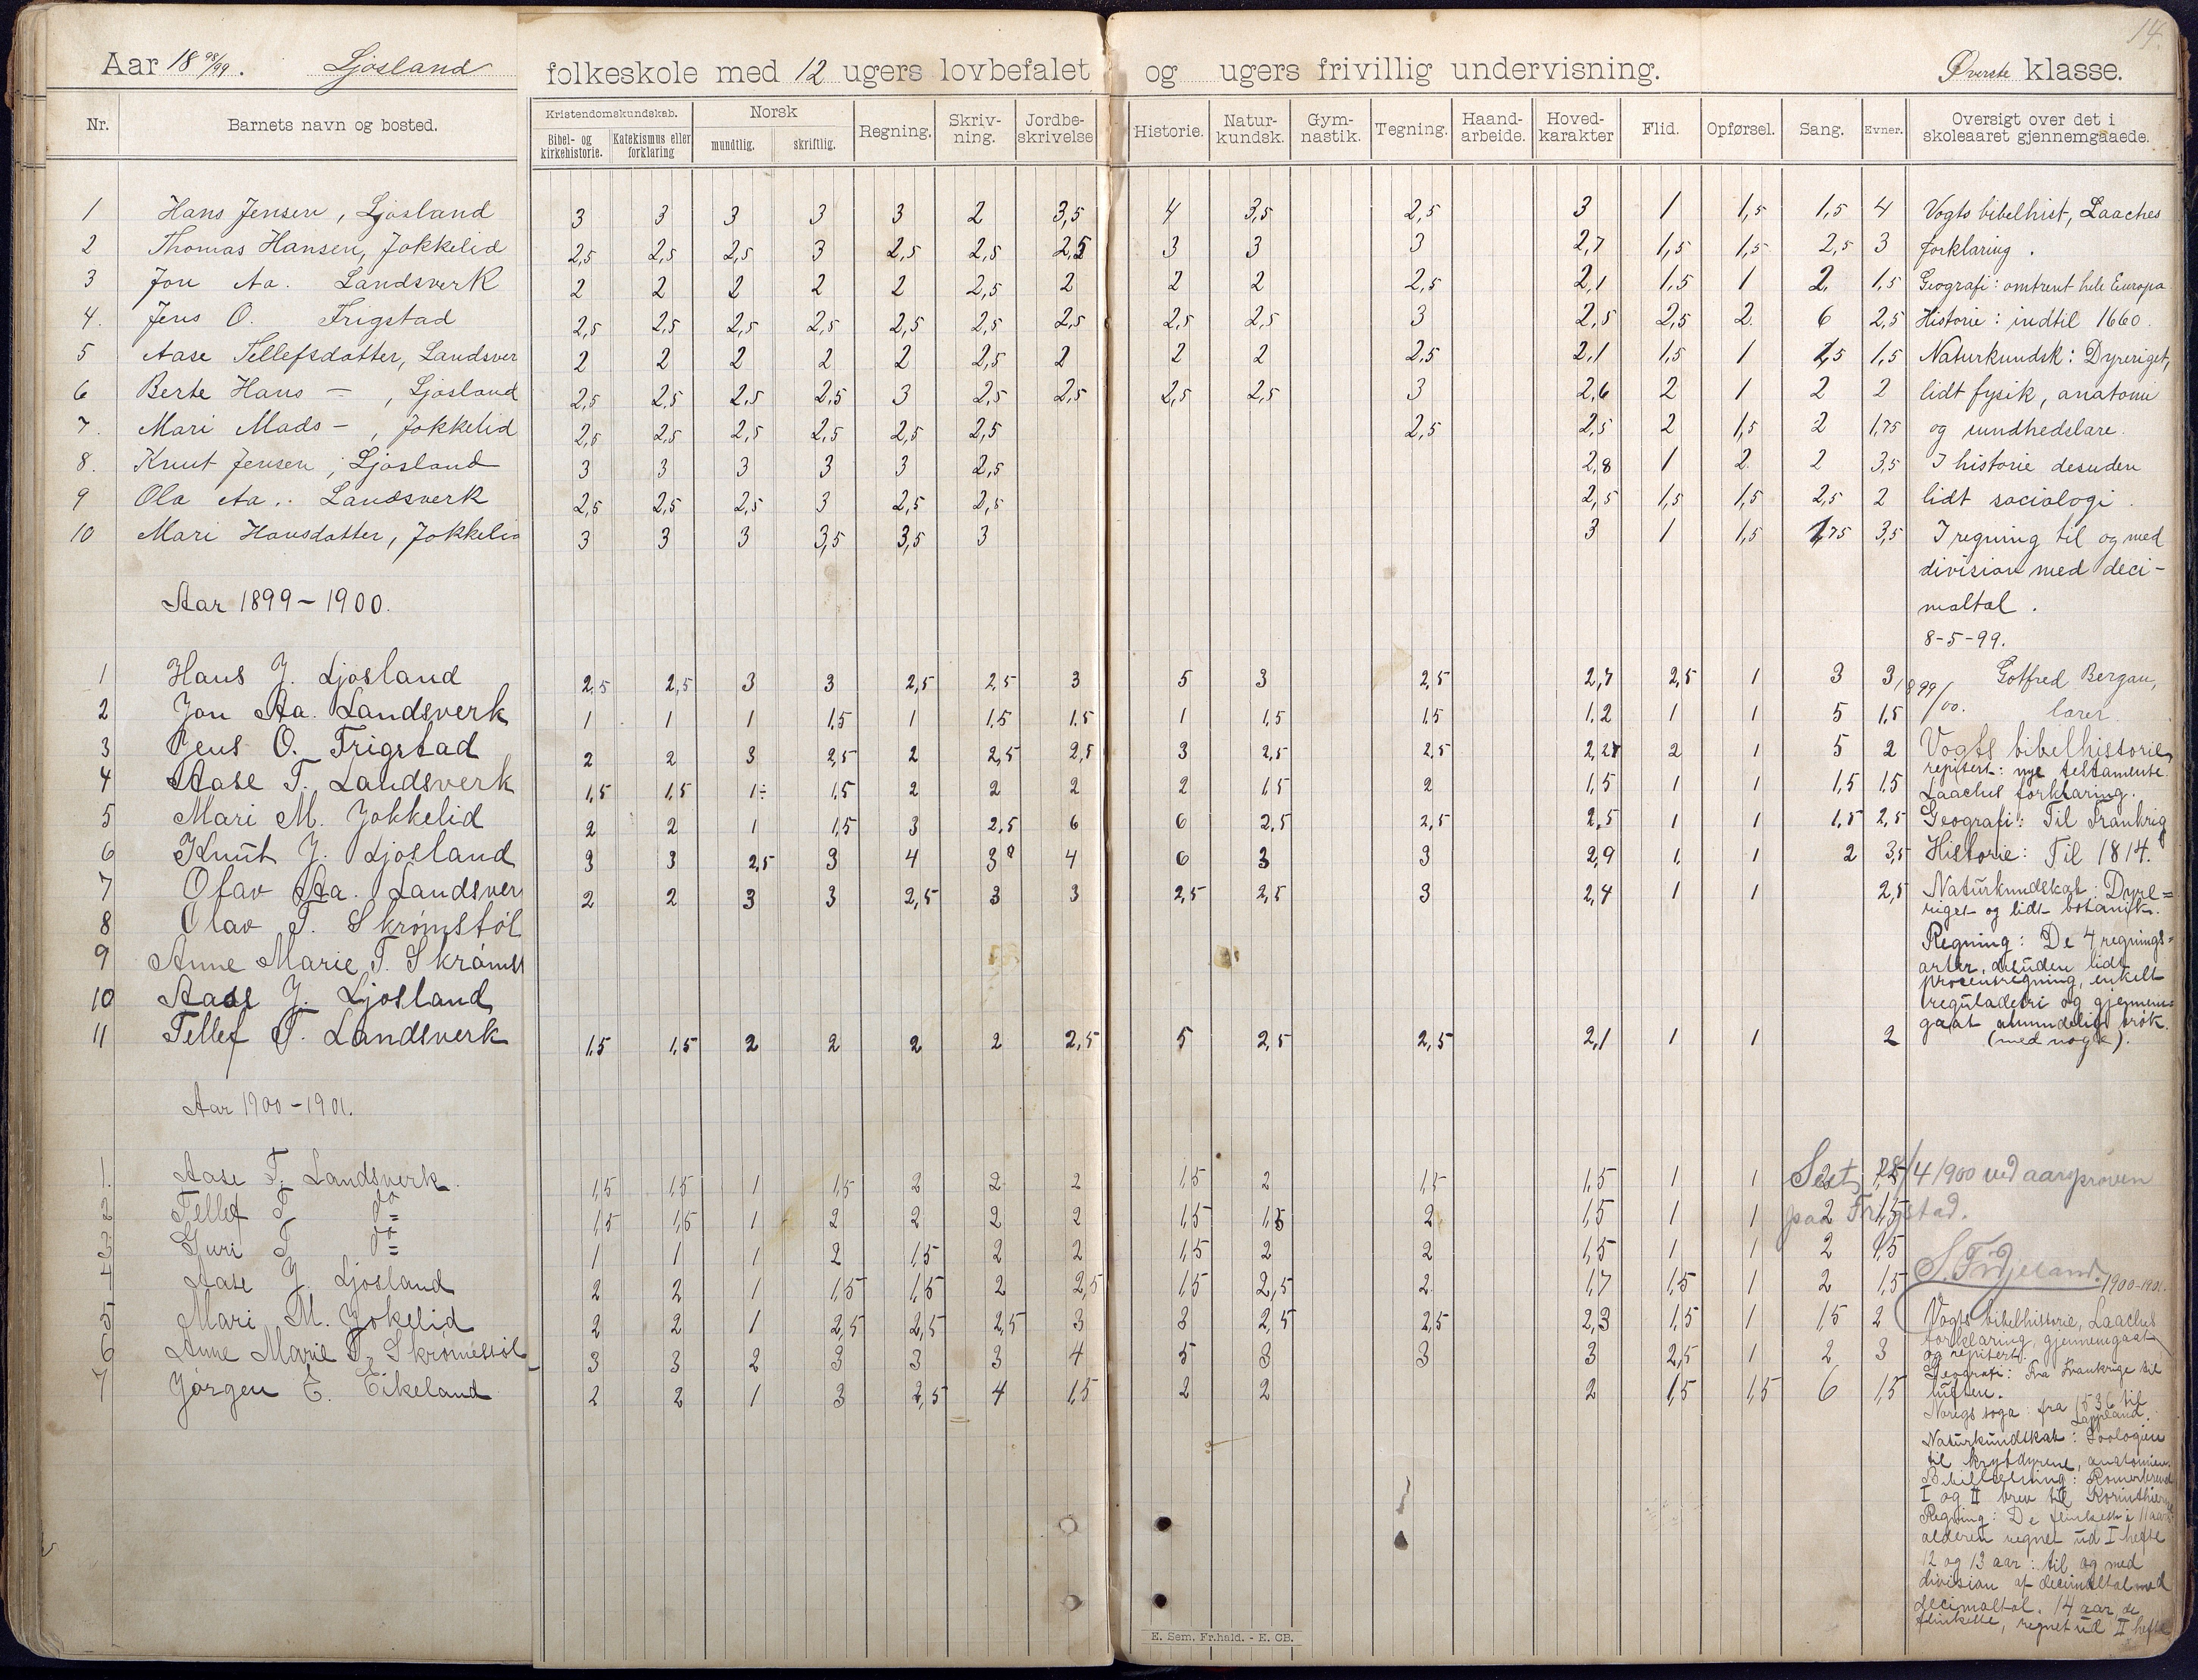 14.
Aar 18 98/99. Ljosland folkeskole med 12 ugers lovbefalet og ugers frivillig undervisning. Øverste klasse.
Nr. Barnets navn og bosted. Kristendomskundskab. Bibel- og kirkehistorie. Katekismus eller forklaring Norsk mundtlig. skriftlig. Regning. Skriv-ning. Jordbe-skrivelse Historie. Natur-kundsk. Gym-nastik. Tegning. Haand-arbeide. Hoved-karakter Flid. Opførsel. Sang. Evner. Oversigt over det i skoleaaret gjennemgaaede.
1 Hans Jensen, Ljosland 3 3 3 3 3 2 3,5 4 3,5 2,5 3 1 1,5 1,5 4 Vogts bibelhist, Laaches
2 Thomas Hansen, Jokkelid 2,5 2,5 2,5 3 2,5 2,5 2,5 3 3 3 2,7 1,5 1,5 2,5 3 forklaring.
3 Jon Aa. Landsverk 2 2 2 2 2 2,5 2 2 2 2,5 2,1 1,5 1 2 1,5 Geografi: omtrent hele Europa
4. Jens O. Frigstad 2,5 2,5 2,5 2,5 2,5 2,5 2,5 2,5 2,5 3 2,5 2,5 2 6 2,5 Historie: indtil 1660.
5 Aase Tellefsdatter, Landsver 2 2 2 2 2 2,5 2 2 2 2,5 2,1 1,5 1 1,5 1,5 Naturkundsk: Dyreriget,
6 Berte Hans –, Ljosland 2,5 2,5 2,5 2,5 3 2,5 2,5 2,5 2,5 3 2,6 2 1 2 2 lidt fysik, anatomi
7. Mari Mads –, Jokkelid 2,5 2,5 2,5 2,5 2,5 2,5 2,5 2,5 2 1,5 2 1,75 og sundhedslære.
8. Knut Jensen, Ljosland 3 3 3 3 3 2,5 2,8 1 2 2 3,5 I historie desuden
9 Ola Aa. Landsverk 2,5 2,5 2,5 3 2,5 2,5 2,5 1,5 1,5 2,5 2 lidt sociologi.
10 Mari Hansdatter, Jokkelid 3 3 3 3,5 3,5 3 3 1 1,5 1,75 3,5 I regning til og med
division med deci-
maltal.
Aar 1899-1900.
8-5-99.
Gotfred Bergan,
lærer.
1 Hans J. Ljosland 2,5 2,5 3 3 2,5 2,5 3 5 3 2,5 2,7 2,5 1 3 3 1899/00.
2 Jon Aa. Landsverk 1 1 1 1,5 1 1,5 1,5 1 1,5 1,5 1,2 1 1 5 1,5
3 Jens O. Frigstad 2 2 3 2,5 2 2,5 2,5 3 2,5 2,5 2,2 2 1 5 2 Vogts bibelhistorie,
repitert: nye testamente.
4 Aase T. Landsverk 1,5 1,5 1÷ 1,5 2 2 2 2 1,5 2 1,5 1 1 1,5 1,5 Laaches forklaring.
5 Mari M. Jokkelid 2 2 1 1,5 3 2,5 6 6 2,5 2,5 2,5 1 1 1,5 2,5 Geografi: Til Frankrig
6 Knut J. Ljosland 3 3 2,5 3 4 3 4 6 3 3 2,9 1 1 2 3,5 Historie: Til 1814.
7 Olav Aa. Landsver 2 2 3 3 2,5 3 3 2,5 2,5 3 2,4 1 1 2,5 Naturkundskab: Dyre=
riget og lidt botanik.
8 Olav T. Skrømstøl
Regning: De 4 regnings=
9 Anne Marie T. Skrømst
arter, desuden lidt
procentregning, enkelt
10 Aase J. Ljosland
reguladetri og gjennem=
gaat almindelig brøk.
11 Tellef T. Landsverk 1,5 1,5 2 2 2 2 2,5 5 2,5 2,5 2,1 1 1 2 (med nogle).
Aar 1900-1901.
1. Aase T. Landsverk. 1,5 1,5 1 1,5 2 2 2 1,5 2 1,5 1,5 1 1 2
Seet 28/4 1900 ved aarsprøven
2 Tellef T do 1,5 1,5 1 2 2 2 2 1,5 1,5 2 1,5 1 1 2 1,5
paa Frigstad.
3. Guri T do 1 1 1 2 1,5 2 2 1,5 2 2 1,5 1 1 2 1,5
4 Aase J. Ljosland 2 2 1 1,5 1,5 2 2,5 1,5 2,5 2 1,7 1,5 1 2 1,5 1900-1901.
5 Mari M. Jokelid 2 2 1 2,5 2,5 2,5 3 3 2,5 2,5 2,3 1,5 1 1,5 2 Vogts bibelhistorie, Laaches
forklaring, gjennemgaat
6 Anne Marie T. Skrømestøl 3 3 2 3 3 3 4 5 3 3 3 2,5 1 2 3 og repitert.
Geografi: Fra Frankrige til
7 Jørgen E. Eikeland 2 2 1 3 2,5 4 1,5 2 2 2 1,5 1,5 6 1,5 luften.
Noregs soga: fra 1536 til
Naturkundskab: Zoologien
til krybdyrene, anatomien.
Bibellæsning: Romerbrevet
I og II brev til Korinthierne
Regning: De flinkeste i 11 aars
alderen regnet ud I hefte
12 og 13 aar: til og med
division af decimaltal med
decimaltal. 14 aar, de
flinkeste, regnet ud II hefte
E. Sem, Fr.hald. - E. CB.